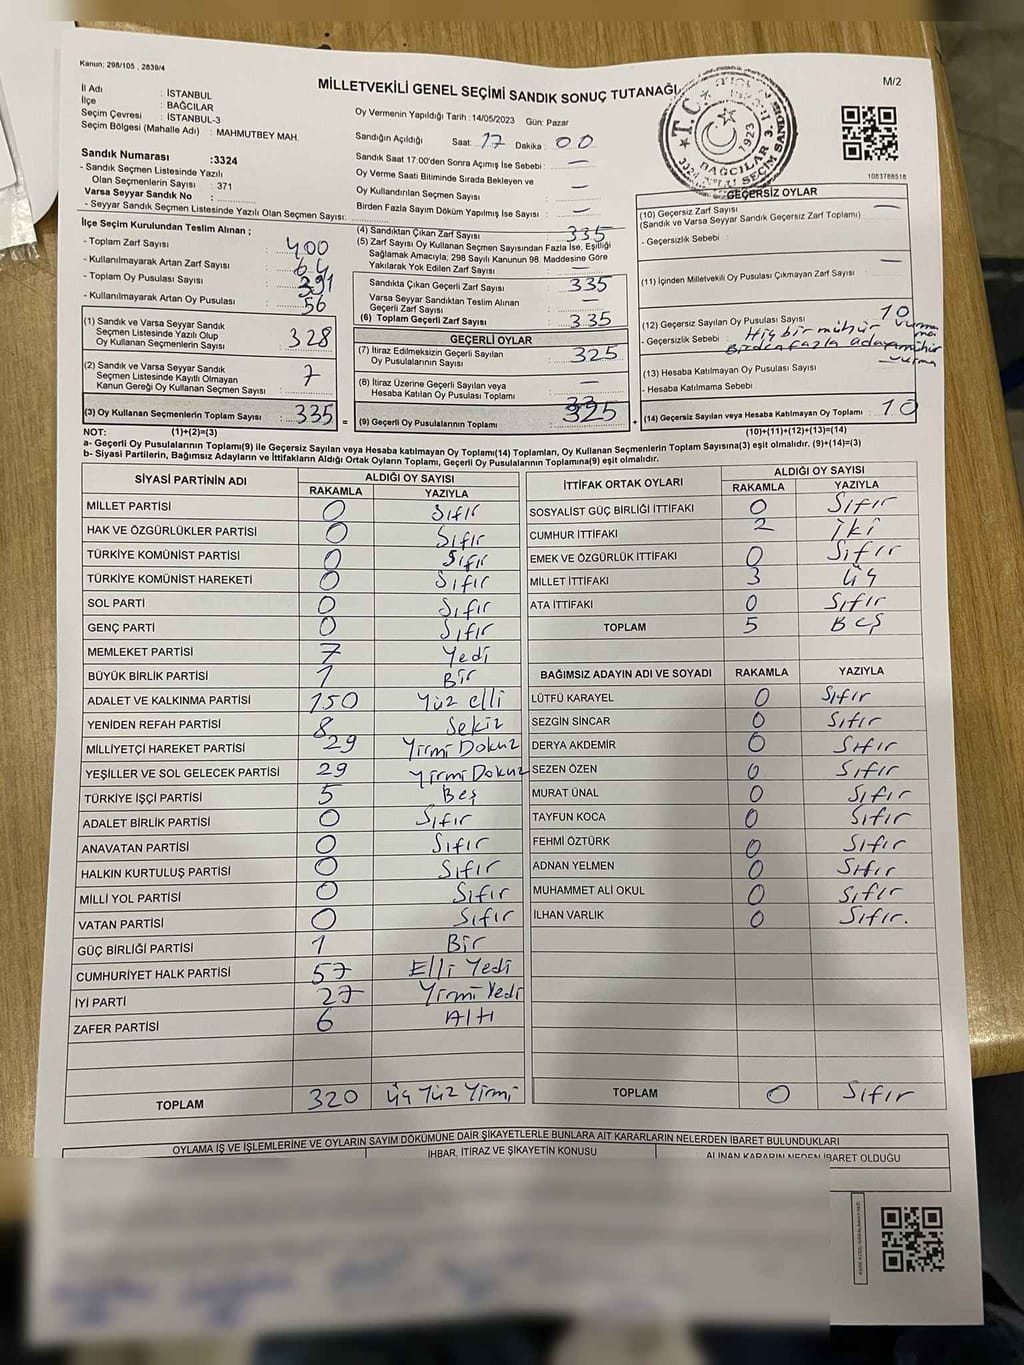 Kanun: 298/105 , 2839/4
MİLLETVEKİLİ GENEL SEÇİMİ SANDIK SONUÇ TUTANAĞI
M/2
İl Adı : İSTANBUL
İlçe : BAĞCILAR
Seçim Çevresi : İSTANBUL-3
Seçim Bölgesi (Mahalle Adı) : MAHMUTBEY MAH.
Sandık Numarası :3324
- Sandık Seçmen Listesinde Yazılı
Olan Seçmenlerin Sayısı : 371
Varsa Seyyar Sandık No :
- Seyyar Sandık Seçmen Listesinde Yazılı Olan Seçmen Sayısı:
Oy Vermenin Yapıldığı Tarih : 14/05/2023 Gün: Pazar
Sandığın Açıldığı Saat: 17 Dakika : 00
Sandık Saat 17:00'den Sonra Açımış İse Sebebi : —
Oy Verme Saati Bitiminde Sırada Bekleyen ve
Oy Kullandırılan Seçmen Sayısı : —
Birden Fazla Sayım Döküm Yapılmış İse Sayısı : —
T.C.
1923
1083788518
İlçe Seçim Kurulundan Teslim Alınan ;
- Toplam Zarf Sayısı : 400
- Kullanılmayarak Artan Zarf Sayısı : 64
- Toplam Oy Pusulası Sayısı : 391
- Kullanılmayarak Artan Oy Pusulası : 56
(1) Sandık ve Varsa Seyyar Sandık
Seçmen Listesinde Yazılı Olup
Oy Kullanan Seçmenlerin Sayısı : 328
(2) Sandık ve Varsa Seyyar Sandık
Seçmen Listesinde Kayıtlı Olmayan
Kanun Gereği Oy Kullanan Seçmen Sayısı : 7
(3) Oy Kullanan Seçmenlerin Toplam Sayısı : 335 =
(4) Sandıktan Çıkan Zarf Sayısı : 335
(5) Zarf Sayısı Oy Kullanan Seçmen Sayısından Fazla İse, Eşitliği
Sağlamak Amacıyla, 298 Sayılı Kanunun 98. Maddesine Göre
Yakılarak Yok Edilen Zarf Sayısı : —
Sandıkta Çıkan Geçerli Zarf Sayısı : 335
Varsa Seyyar Sandıktan Teslim Alınan
Geçerli Zarf Sayısı : —
(6) Toplam Geçerli Zarf Sayısı : 335
GEÇERLİ OYLAR
(7) İtiraz Edilmeksizin Geçerli Sayılan
Oy Pusulalarının Sayısı : 325
(8) İtiraz Üzerine Geçerli Sayılan veya
Hesaba Katılan Oy Pusulası Toplamı : —
(9) Geçerli Oy Pusulalarının Toplamı : 325 +
GEÇERSİZ OYLAR
(10) Geçersiz Zarf Sayısı : —
(Sandık ve Varsa Seyyar Sandık Geçersiz Zarf Toplamı)
- Geçersizlik Sebebi :
(11) İçinden Milletvekili Oy Pusulası Çıkmayan Zarf Sayısı : —
(12) Geçersiz Sayılan Oy Pusulası Sayısı : 10
- Geçersizlik Sebebi : Hiçbir mühür vurmama
Birden fazla adaya mühür vurma
(13) Hesaba Katılmayan Oy Pusulası Sayısı : —
- Hesaba Katılmama Sebebi :
(14) Geçersiz Sayılan veya Hesaba Katılmayan Oy Toplamı : 10
NOT: (1)+(2)=(3) (10)+(11)+(12)+(13)=(14)
a- Geçerli Oy Pusulalarının Toplamı(9) ile Geçersiz Sayılan veya Hesaba katılmayan Oy Toplamı(14) Toplamları, Oy Kullanan Seçmenlerin Toplam Sayısına(3) eşit olmalıdır. (9)+(14)=(3)
b- Siyasi Partilerin, Bağımsız Adayların ve İttifakların Aldığı Ortak Oyların Toplamı, Geçerli Oy Pusulalarının Toplamına(9) eşit olmalıdır.
SİYASİ PARTİNİN ADI ALDIĞI OY SAYISI
RAKAMLA YAZIYLA
MİLLET PARTİSİ 0 Sıfır
HAK VE ÖZGÜRLÜKLER PARTİSİ 0 Sıfır
TÜRKİYE KOMÜNİST PARTİSİ 0 Sıfır
TÜRKİYE KOMÜNİST HAREKETİ 0 Sıfır
SOL PARTİ 0 Sıfır
GENÇ PARTİ 0 Sıfır
MEMLEKET PARTİSİ 7 Yedi
BÜYÜK BİRLİK PARTİSİ 1 Bir
ADALET VE KALKINMA PARTİSİ 150 Yüz elli
YENİDEN REFAH PARTİSİ 8 Sekiz
MİLLİYETÇİ HAREKET PARTİSİ 29 Yirmi Dokuz
YEŞİLLER VE SOL GELECEK PARTİSİ 29 Yirmi Dokuz
TÜRKİYE İŞÇİ PARTİSİ 5 Beş
ADALET BİRLİK PARTİSİ 0 Sıfır
ANAVATAN PARTİSİ 0 Sıfır
HALKIN KURTULUŞ PARTİSİ 0 Sıfır
MİLLİ YOL PARTİSİ 0 Sıfır
VATAN PARTİSİ 0 Sıfır
GÜÇ BİRLİĞİ PARTİSİ 1 Bir
CUMHURİYET HALK PARTİSİ 57 Elli Yedi
İYİ PARTİ 27 Yirmi Yedi
ZAFER PARTİSİ 6 Altı
TOPLAM 320 Üç Yüz Yirmi
İTTİFAK ORTAK OYLARI ALDIĞI OY SAYISI
RAKAMLA YAZIYLA
SOSYALİST GÜÇ BİRLİĞİ İTTİFAKI 0 Sıfır
CUMHUR İTTİFAKI 2 İki
EMEK VE ÖZGÜRLÜK İTTİFAKI 0 Sıfır
MİLLET İTTİFAKI 3 üç
ATA İTTİFAKI 0 Sıfır
TOPLAM 5 Beş
BAĞIMSIZ ADAYIN ADI VE SOYADI RAKAMLA YAZIYLA
LÜTFÜ KARAYEL 0 Sıfır
SEZGİN SİNCAR 0 Sıfır
DERYA AKDEMİR 0 Sıfır
SEZEN ÖZEN 0 Sıfır
MURAT ÜNAL 0 Sıfır
TAYFUN KOCA 0 Sıfır
FEHMİ ÖZTÜRK 0 Sıfır
ADNAN YELMEN 0 Sıfır
MUHAMMET ALİ OKUL 0 Sıfır
İLHAN VARLIK 0 Sıfır.
TOPLAM 0 Sıfır
OYLAMA İŞ VE İŞLEMLERİNE VE OYLARIN SAYIM DÖKÜMÜNE DAİR ŞİKAYETLERLE BUNLARA AİT KARARLARIN NELERDEN İBARET BULUNDUKLARI
İHBAR, İTİRAZ VE ŞİKAYETİN KONUSU
ALINAN KARARIN NEDEN İBARET OLDUĞU